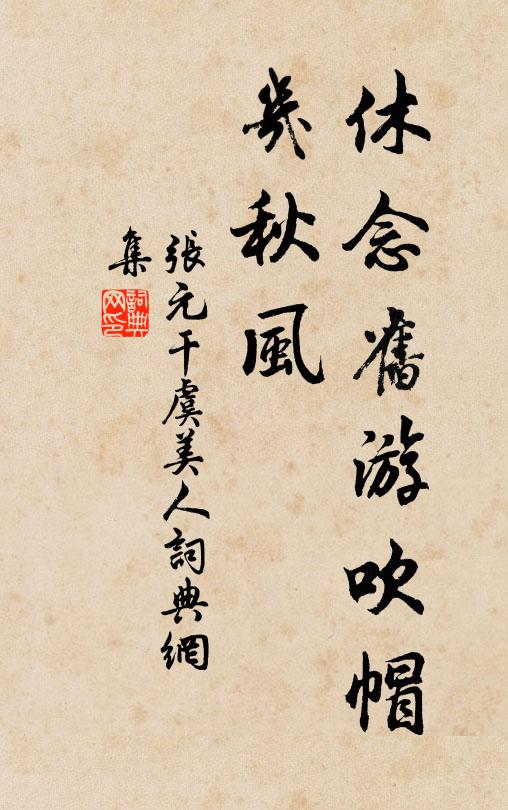 休念舊游吹帽
幾秋風
張元干虞美人詞典網
集
詞典
网印